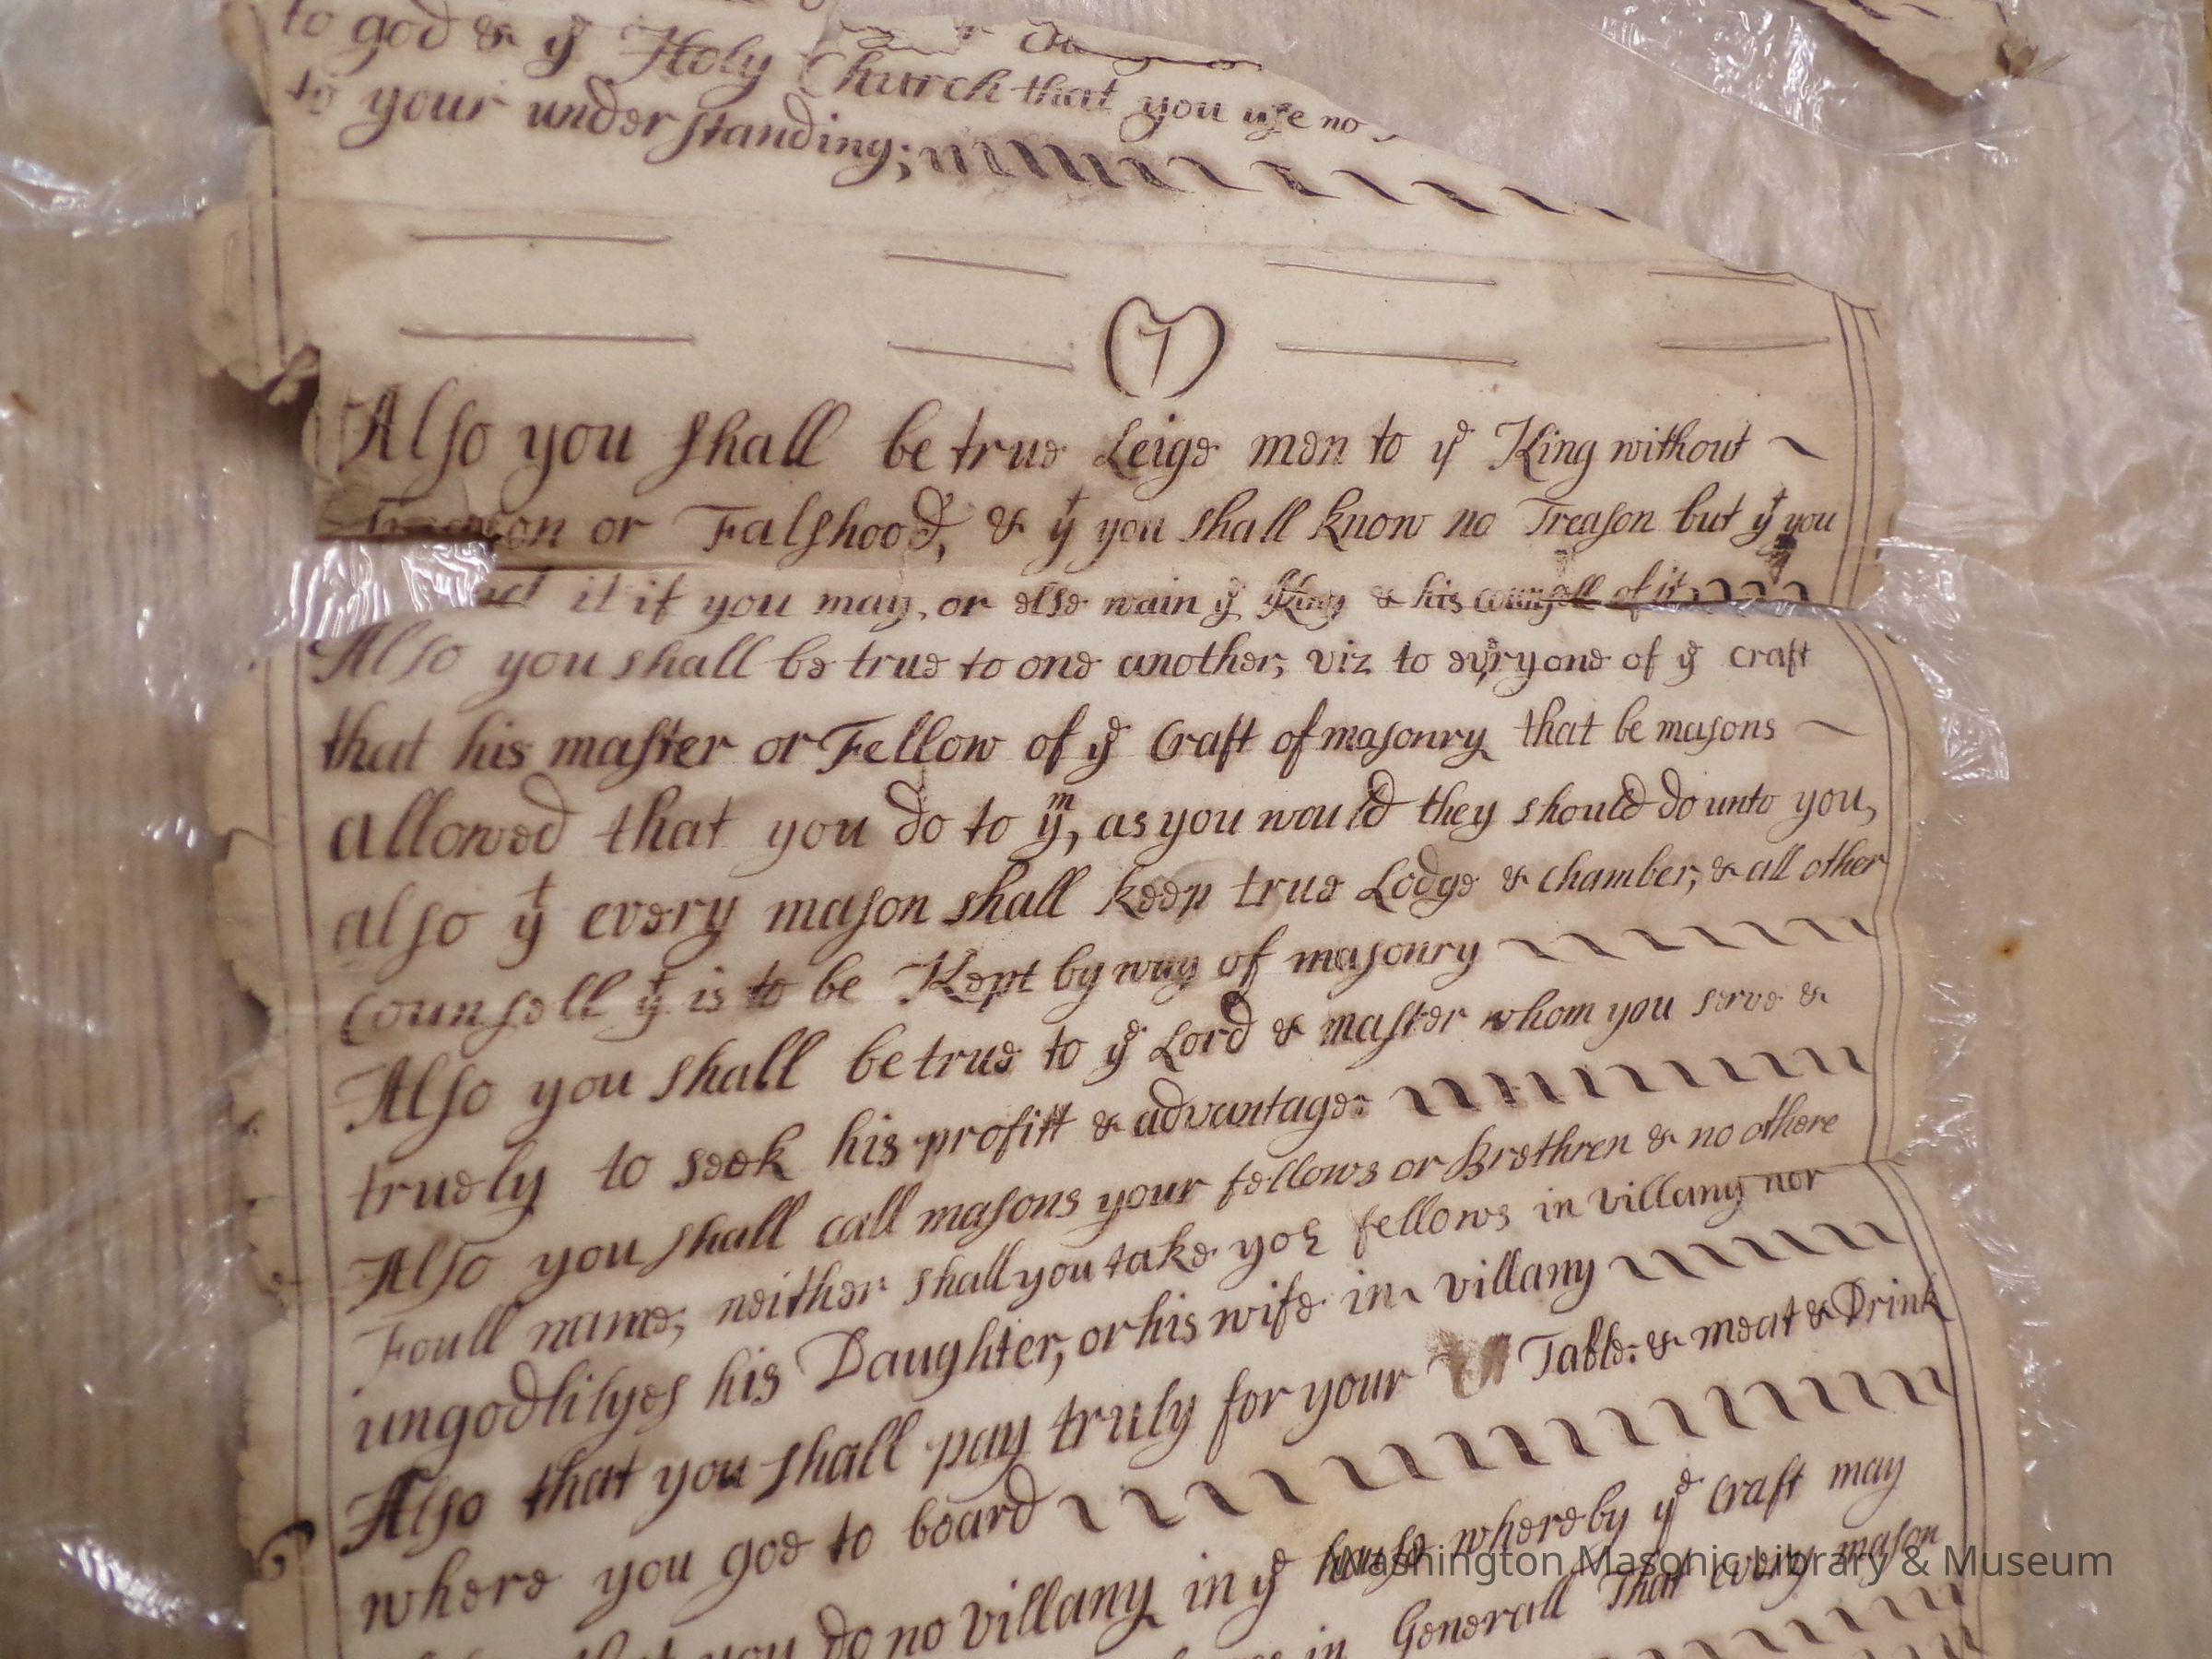 to god & yᵉ Holy Church that you use no
to your understanding;
(7)
Also you shall be true Leige men to yᵉ King without
Treason or Falshood, & yᵗ you shall know no Treason but yᵗ you
it if you may, or else warn yᵉ King & his counsell of it
Also you shall be true to one another, viz to every one of yᵉ craft
that his master or Fellow of yᵉ Craft of masonry that be masons
allowed that you do to yᵐ, as you would they should do unto you,
also yᵗ every mason shall keep true Lodge & chamber, & all other
Counsell yᵗ is to be Kept by way of masonry
Also you shall be true to yᵉ Lord & master whom you serve &
truely to seek his profitt & advantage:
Also you shall call masons your fellows or Brethren & no othere
Foull name, neither shall you take yoʳ fellows in villany nor
ungodlilyes his Daughter, or his wife in villany
Also that you shall pay truly for your Table: & meat & Drink
where you goe to board
that you do no villany in yᵉ house whereby yᵉ Craft may
in Generall That every mason
Washington Masonic Library & Museum